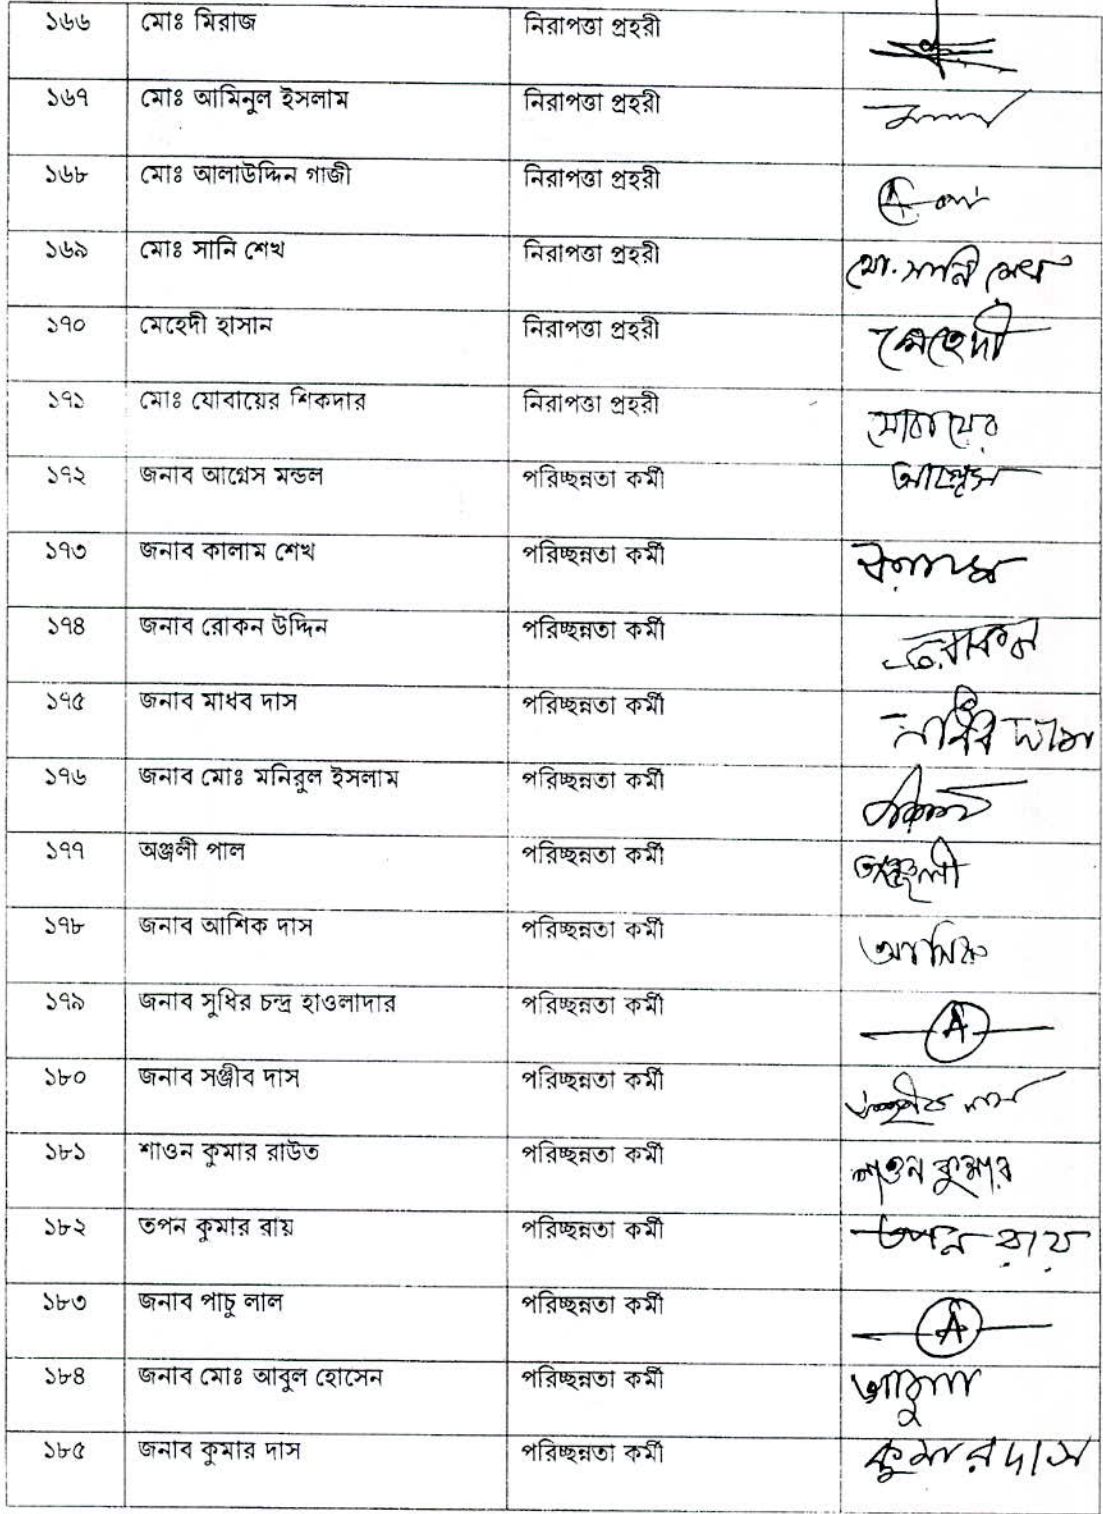 ১৬৬ মোঃ মিরাজ নিরাপত্তা প্রহরী
১৬৭ মোঃ আমিনুল ইসলাম নিরাপত্তা প্রহরী
১৬৮ মোঃ আলাউদ্দিন গাজী নিরাপত্তা প্রহরী A
১৬৯ মোঃ সানি শেখ নিরাপত্তা প্রহরী মো. সানি শেখ
১৭০ মেহেদী হাসান নিরাপত্তা প্রহরী মেহেদী
১৭১ মোঃ যোবায়ের শিকদার নিরাপত্তা প্রহরী যোবায়ের
১৭২ জনাব আগ্নেস মন্ডল পরিচ্ছন্নতা কর্মী আগ্নেস
১৭৩ জনাব কালাম শেখ পরিচ্ছন্নতা কর্মী কালাম
১৭৪ জনাব রোকন উদ্দিন পরিচ্ছন্নতা কর্মী রোকন
১৭৫ জনাব মাধব দাস পরিচ্ছন্নতা কর্মী মাধব দাস
১৭৬ জনাব মোঃ মনিরুল ইসলাম পরিচ্ছন্নতা কর্মী
১৭৭ অঞ্জলী পাল পরিচ্ছন্নতা কর্মী অঞ্জলী
১৭৮ জনাব আশিক দাস পরিচ্ছন্নতা কর্মী আশিক
১৭৯ জনাব সুধির চন্দ্র হাওলাদার পরিচ্ছন্নতা কর্মী A
১৮০ জনাব সঞ্জীব দাস পরিচ্ছন্নতা কর্মী সঞ্জীব দাস
১৮১ শাওন কুমার রাউত পরিচ্ছন্নতা কর্মী শাওন কুমার
১৮২ তপন কুমার রায় পরিচ্ছন্নতা কর্মী তপন রায়
১৮৩ জনাব পাচু লাল পরিচ্ছন্নতা কর্মী A
১৮৪ জনাব মোঃ আবুল হোসেন পরিচ্ছন্নতা কর্মী আবুল
১৮৫ জনাব কুমার দাস পরিচ্ছন্নতা কর্মী কুমার দাস